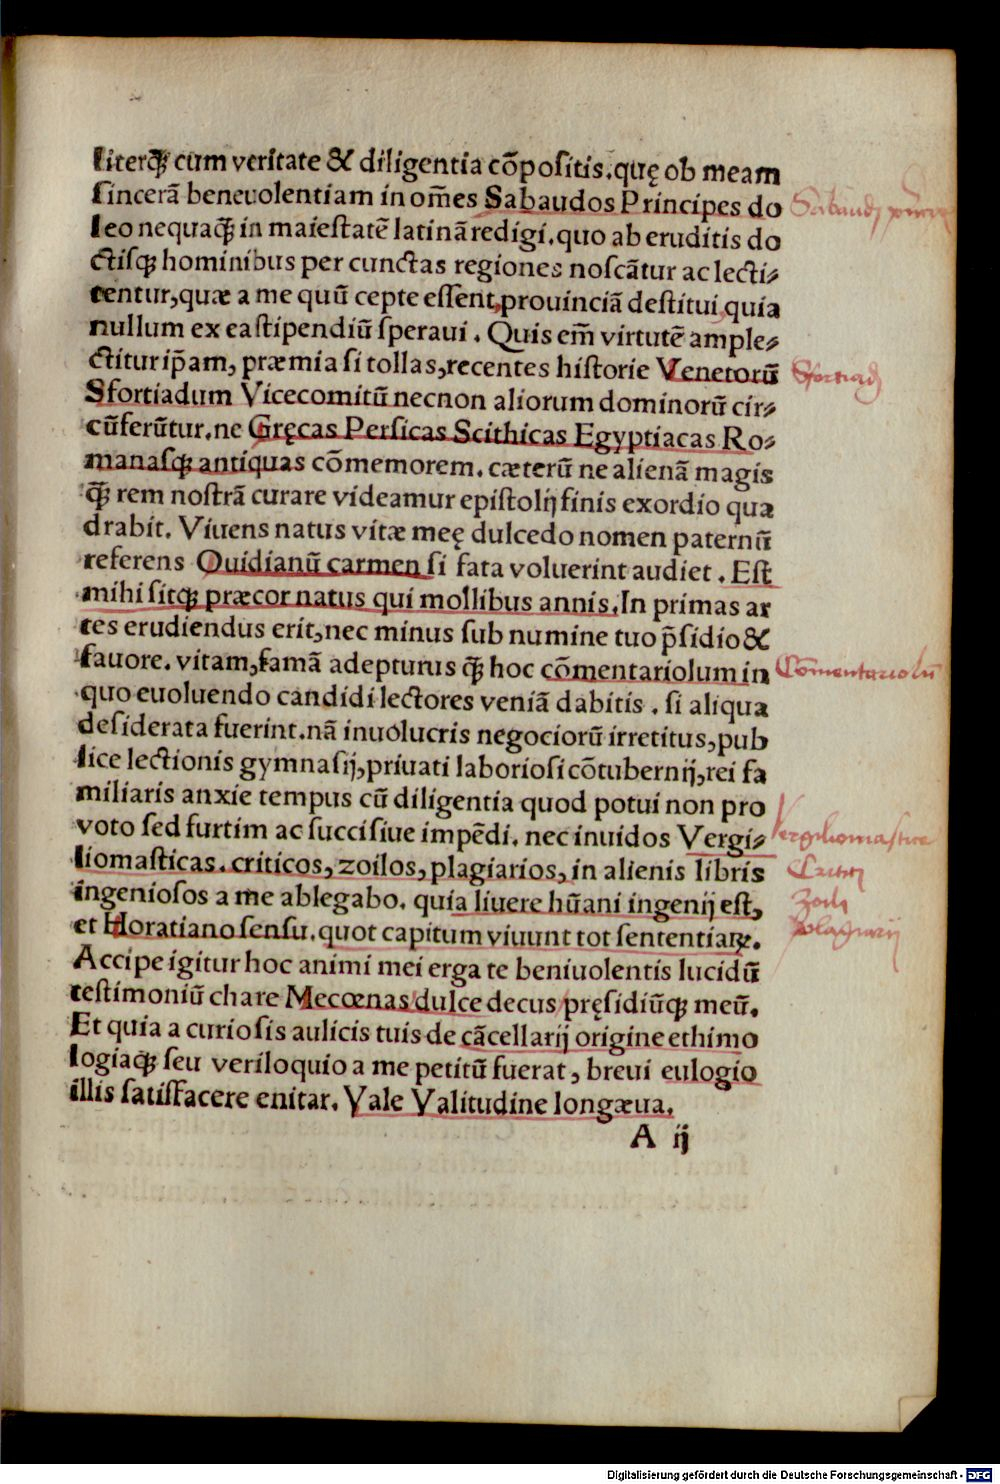 literꝙ cum veritate & diligentia cõpositis. quę ob meam
sincerã benevolentiam in om̃es Sabaudos Principes do
leo nequaꝙ in maiestatẽ latinã redigi. quo ab eruditis do
ctisqꝫ hominibus per cunctas regiones noscãtur ac lecti⸗
tentur, quæ a me quũ cepte essent, prouinciã destitui quia
nullum ex ea stipendiũ speraui. Quis em̃ virtutẽ ample⸗
ctitur ip̃am, præmia si tollas, recentes historie Venetorũ
Sfortiadum Vicecomitũ necnon aliorum dominorũ cir⸗
cũferũtur. ne Gręcas Persicas Scithicas Egyptiacas Ro⸗
manasqꝫ antiquas cõmemorem. cæterũ ne alienã magis
ꝙ̃ rem nostrã curare videamur epistolij finis exordio qua
drabit. Viuens natus vitæ meę dulcedo nomen paternũ
referens Ouidianũ carmen si fata voluerint audiet. Est
mihi sitqꝫ præcor natus qui mollibus annis. In primas ar
tes erudiendus erit, nec minus sub numine tuo p̃sidio &
fauore. vitam, famã adepturus ꝙ̃ hoc cõmentariolum in
quo euoluendo candidi lectores veniã dabitis. si aliqua
desiderata fuerint. nã inuolucris negociorũ irretitus, pub
lice lectionis gymnasij, priuati laboriosi cõtubernij, rei fa
miliaris anxie tempus cũ diligentia quod potui non pro
voto sed furtim ac succisiue impẽdi. nec inuidos Vergi⸗
liomasticas. criticos, zoilos, plagiarios, in alienis libris
ingeniosos a me ablegabo. quia liuere hũani ingenij est,
et Horatiano sensu. quot capitum viuunt tot sententiaꝝ.
Accipe igitur hoc animi mei erga te beniuolentis lucidũ
testimoniũ chare Mecœnas dulce decus pręsidiũqꝫ meũ.
Et quia a curiosis aulicis tuis de cãcellarij origine ethimo
logiaqꝫ seu veriloquio a me petitũ fuerat, breui eulogio
illis satisfacere enitar. Vale Valitudine longæua.
A ij
Sabaudi
Sfortiad
Cõmentariolũ
Vergiliomastice
Critici
Zoili
plagiarij
Digitalisierung gefördert durch die Deutsche Forschungsgemeinschaft - DFG